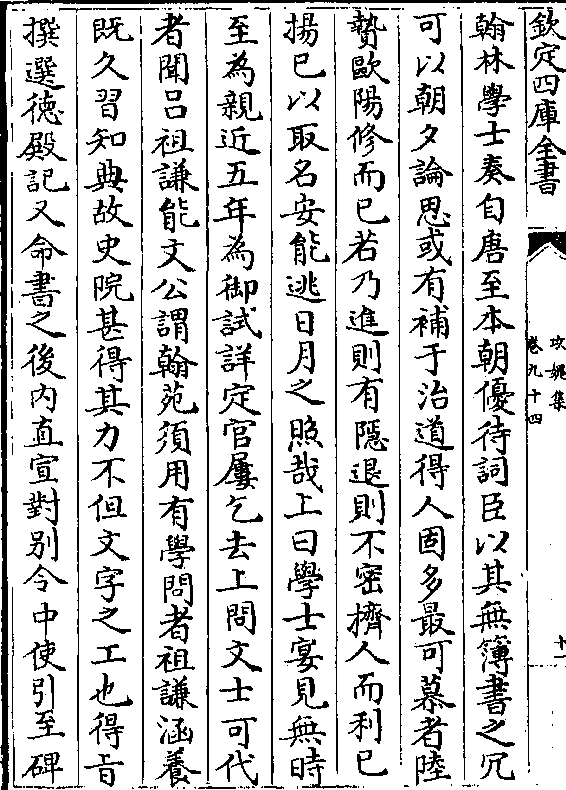 欽定四庫全書
攻媿集
卷九十四
十一
翰林學士奏自唐至本朝優待詞臣以其無簿書之冗
可以朝夕論思或有補于治道得人固多最可慕者陸
贄歐陽修而已若乃進則有隱退則不密擠人而利已
揚已以取名安能逃日月之照哉上曰學士宴見無時
至為親近五年為御試詳定官屢乞去上問文士可代
者聞吕祖謙能文公謂翰苑須用有學問者祖謙涵養
既久習知典故史院甚得其力不但文字之工也得㫖
撰選徳殿記又命書之後内直宣對别令中使引至碑